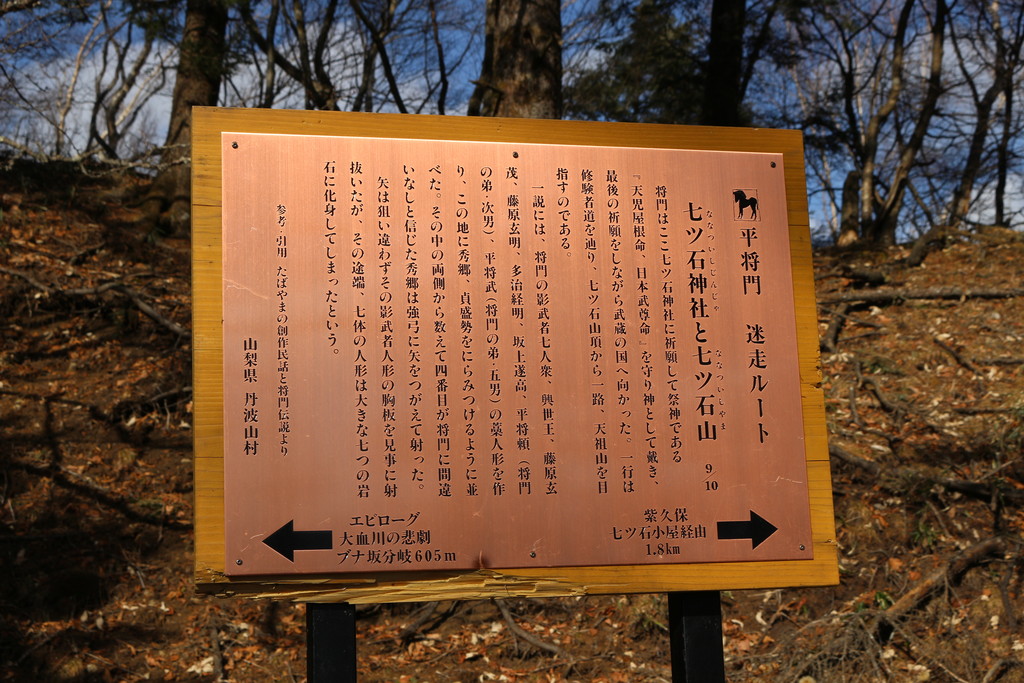 平将門 迷走ルート
七ツ石神社と七ツ石山
ななついしじんじゃ
ななついしやま
9
10
将門はここ七ツ石神社に祈願して祭神である
『天児屋根命、日本武尊命』を守り神として戴き、
最後の祈願をしながら武蔵の国へ向かった。一行は
修験者道を辿り、七ツ石山頂から一路、天祖山を目
指すのである。
一説には、将門の影武者七人衆、興世王、藤原玄
茂、藤原玄明、多治経明、坂上遂高、平将頼、(将門
の弟・次男)、平将武(将門の弟・五男)の藁人形を作
り、この地に秀郷、貞盛勢をにらみつけるように並
べた。その中の両側から数えて四番目が将門に間違
いなしと信じた秀郷は強弓に矢をつがえて射った。
矢は狙い違わずその影武者人形の胸板を見事に射
抜いたが、その途端、七体の人形は大きな七つの岩
石に化身してしまったという。
参考・引用 たばやまの創作民話と将門伝説より
山梨県 丹波山村
紫久保
七ツ石小屋経由
1.8km
エピローグ
大血川の悲劇
ブナ坂分岐605m